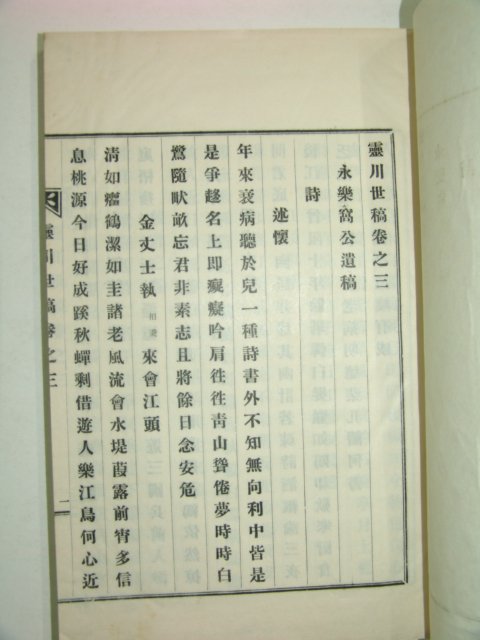 靈川世稿卷之三
永樂窩公遺稿
詩
述懷
年來衰病聽於兒一種詩書外不知無向利中皆是
是爭趍名上卽癡癡吟肩徃徃靑山聳倦夢時時白
鷺隨畎畝忘君非素志且將餘日念安危
金丈士執 相尭 來會江頭
淸如癯鶴潔如圭諸老風流會水堤葭露前宵多信
息桃源今日好成蹊秋蟬剩借遊人樂江鳥何心近
靈川世稿卷之三